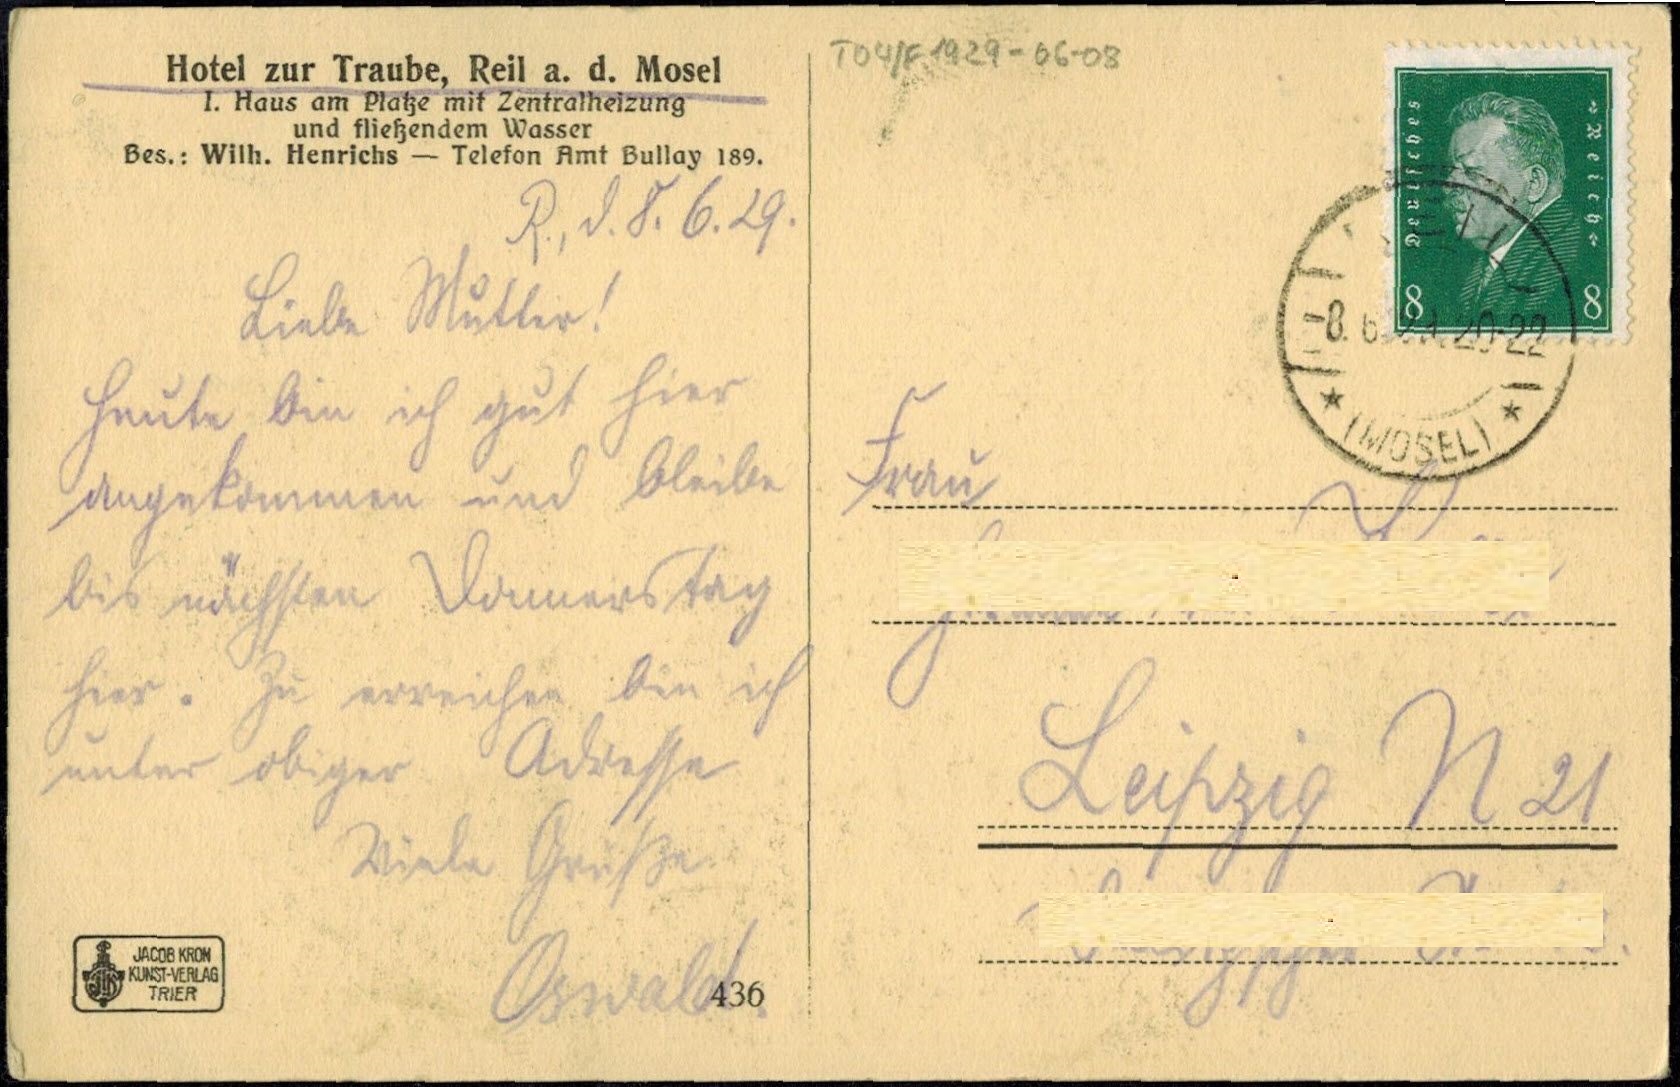 Hotel zur Traube, Reil a. d. Mosel
I. Haus am Platze mit Zentralheizung
und fließendem Wasser
Bes.: Wilh. Henrichs — Telefon Amt Bullay 189.
R., d. 8. 6. 29.
Liebe Mutter!
Heute bin ich gut hier
angekommen und bleibe
bis nächsten Donnerstag
hier. Zu erreichen bin ich
unter obiger Adresse
Viele Grüße
Oswald.
JACOB KRON
KUNST-VERLAG
TRIER
436
T04/F 1929-06-08
Deutsches Reich
8 8
-8. 6. 20-22
(MOSEL)
Frau
Leipzig N 21